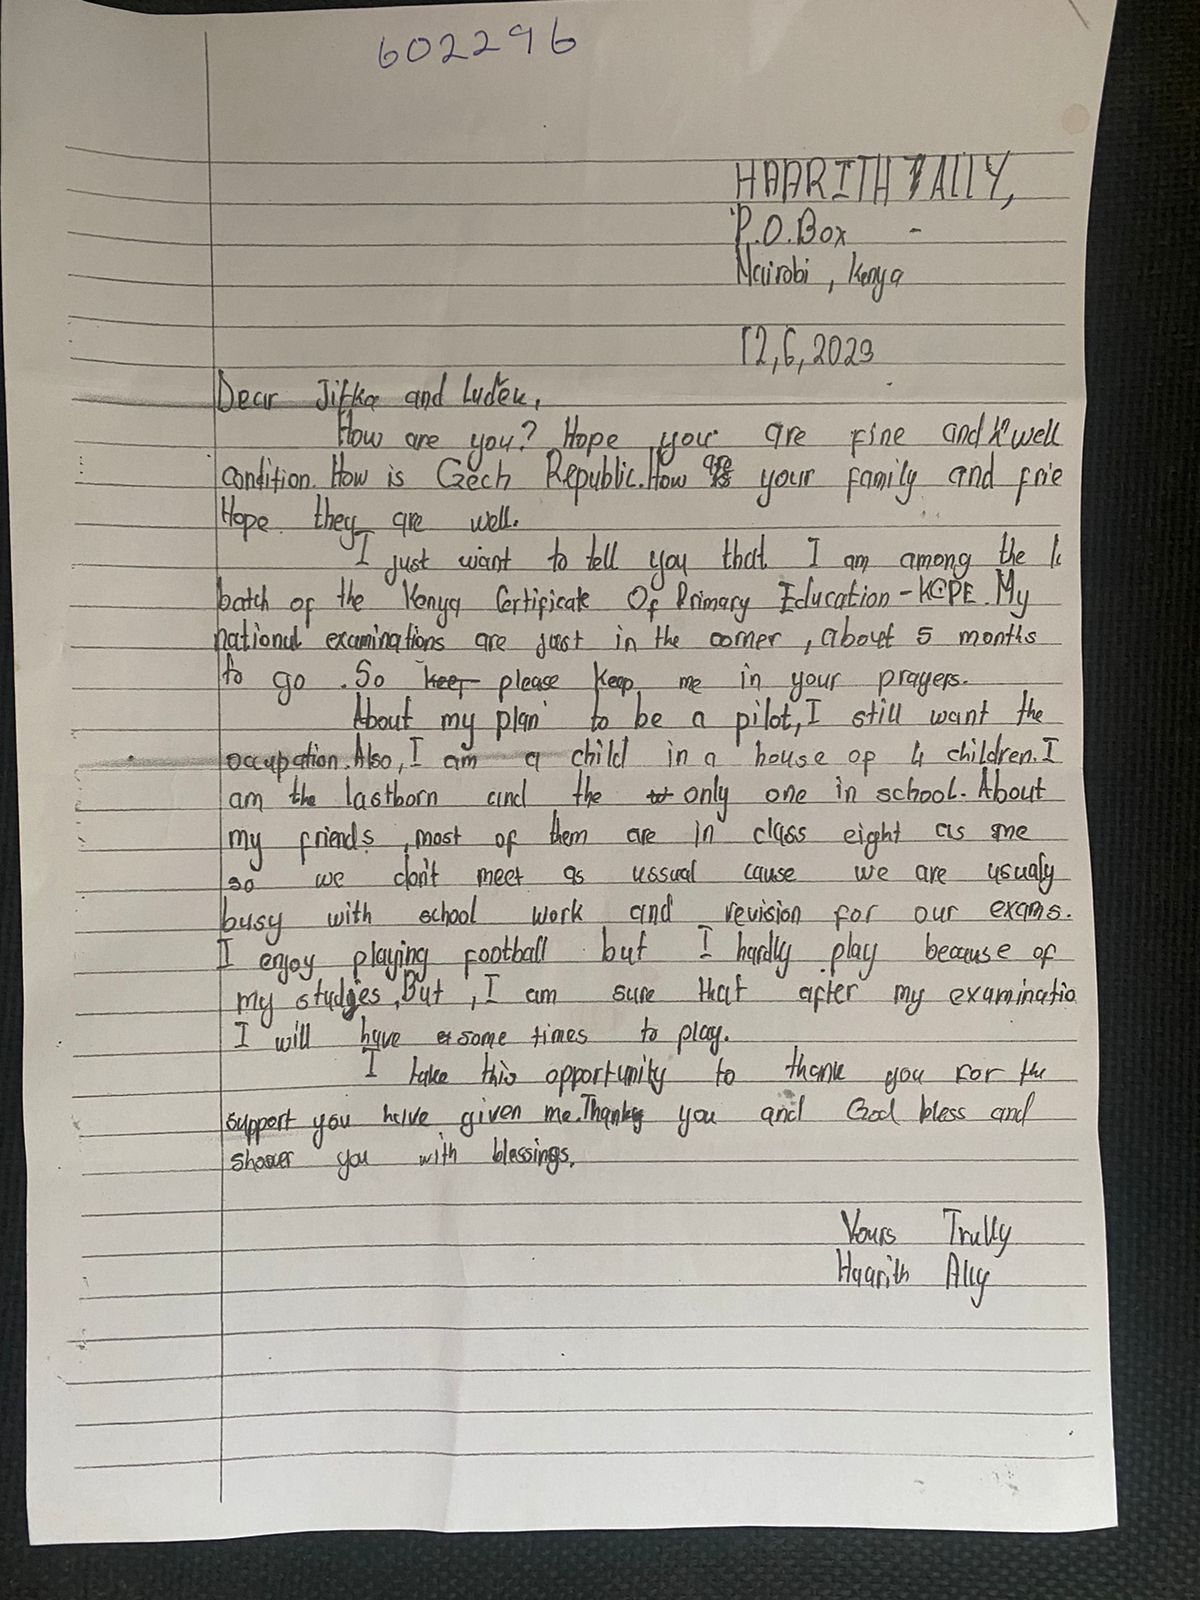 602296
HAARITH ALLY,
P.O.Box -
Nairobi, Kenya
12,6,2023
Dear Jitka and Luděk,
How are you? Hope your are fine and well
condition. How is Czech Republic. How are your family and frie
Hope they are well.
I just want to tell you that I am among the
batch of the Kenya Certificate Of Primary Education - KCPE. My
national examinations are just in the corner, about 5 months
to go. So keep please keep me in your prayers.
About my plan to be a pilot, I still want the
occupation. Also, I am a child in a house of 4 children. I
am the lastborn and the only one in school. About
my friends, most of them are in class eight as me
so we don't meet as ussual cause we are usualy
busy with school work and revision for our exams.
I enjoy playing football but I hardly play because of
my studies. But, I am sure that after my examinatio
I will have some times to play.
I take this opportunity to thank you for the
support you have given me. Thank you and God bless and
shower you with blessings.
Yours Trully
Haarith Ally